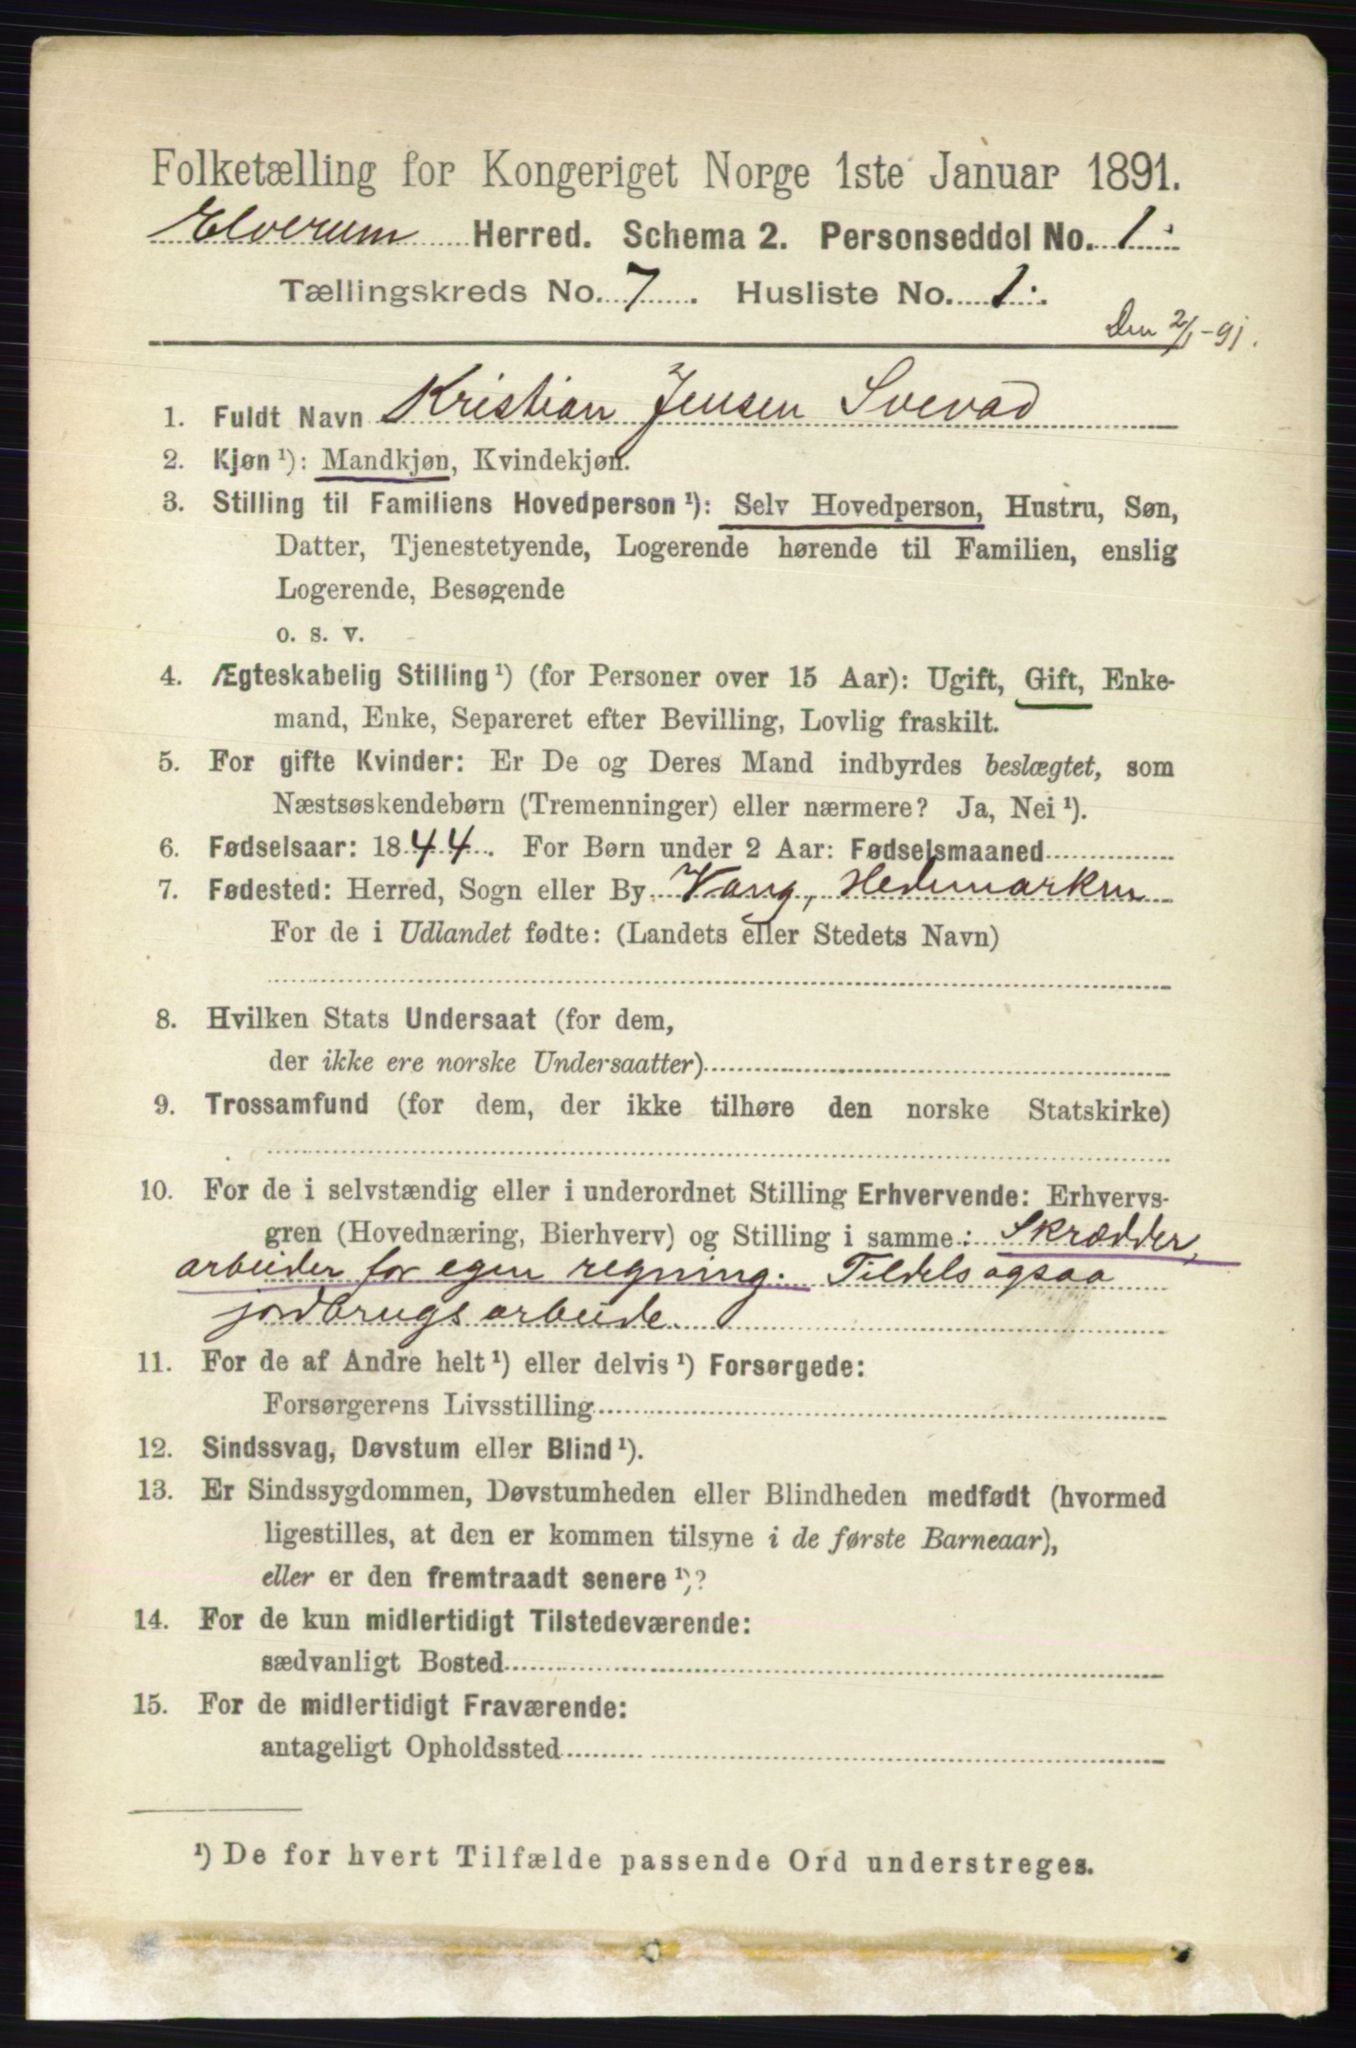 Folketælling for Kongeriget Norge 1ste Januar 1891.
Elverum Herred. Schema 2. Personseddel No. 1.
Tællingskreds No. 7. Husliste No. 1.
Den 2/1-91.
1. Fuldt Navn Kristian Jensen Svevad
2. Kjøn ¹): Mandkjøn, Kvindekjøn.
3. Stilling til Familiens Hovedperson ¹): Selv Hovedperson, Hustru, Søn,
Datter, Tjenestetyende, Logerende hørende til Familien, enslig
Logerende, Besøgende
o. s. v.
4. Ægteskabelig Stilling ¹) (for Personer over 15 Aar): Ugift, Gift, Enke-
mand, Enke, Separeret efter Bevilling, Lovlig fraskilt.
5. For gifte Kvinder: Er De og Deres Mand indbyrdes beslægtet, som
Næstsøskendebørn (Tremenninger) eller nærmere? Ja, Nei ¹).
6. Fødselsaar: 1844. For Børn under 2 Aar: Fødselsmaaned
7. Fødested: Herred, Sogn eller By Vang, Hedemarken
For de i Udlandet fødte: (Landets eller Stedets Navn)
8. Hvilken Stats Undersaat (for dem,
der ikke ere norske Undersaatter)
9. Trossamfund (for dem, der ikke tilhøre den norske Statskirke)
10. For de i selvstændig eller i underordnet Stilling Erhvervende: Erhvervs-
gren (Hovednæring, Bierhverv) og Stilling i samme: Skrædder,
arbeider for egen regning. Tildels ogsaa
jordbrugsarbeide.
11. For de af Andre helt ¹) eller delvis ¹) Forsørgede:
Forsørgerens Livsstilling
12. Sindssvag, Døvstum eller Blind ¹).
13. Er Sindssygdommen, Døvstumheden eller Blindheden medfødt (hvormed
ligestilles, at den er kommen tilsyne i de første Barneaar),
eller er den fremtraadt senere ¹)?
14. For de kun midlertidigt Tilstedeværende:
sædvanligt Bosted
15. For de midlertidigt Fraværende:
antageligt Opholdssted
¹) De for hvert Tilfælde passende Ord understreges.